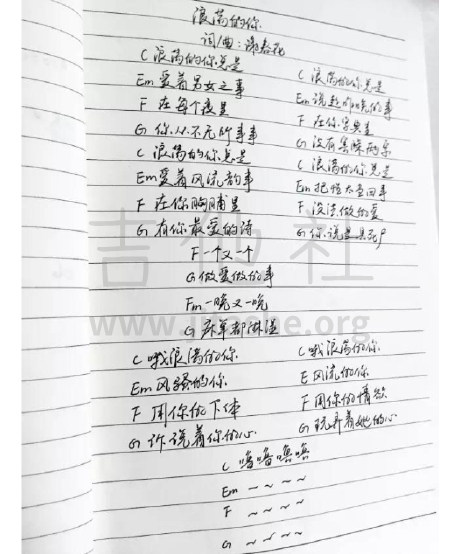 浪荡的你
词/曲：
C 浪荡的你总是
Em 爱着男女之事
F 在每个夜里
G 你从不无所事事
C 浪荡的你总是
Em 爱着风流韵事
F 在你胸脯里
G 有你最爱的诗
C 浪荡的你总是
Em 说起昨晚的事
F 在你字典里
G 没有害臊两字
C 浪荡的你总是
Em 把性太当回事
F 没法做的爱
G 你说是
F 一个又一个
G 做爱做的事
Em 一晚又一晚
G 床单都淋湿
C 哦浪荡的你
Em 风骚的你
F 用你的下体
G 诉说着你的心
C 哦浪荡的你
E 风流的你
F 用你的情欲
G 玩弄着她的心
C 噜噜噜噜
Em ~ ~ ~ ~
F ~ ~ ~ ~
G ~ ~ ~ ~
吉他社
www.jitashe.org